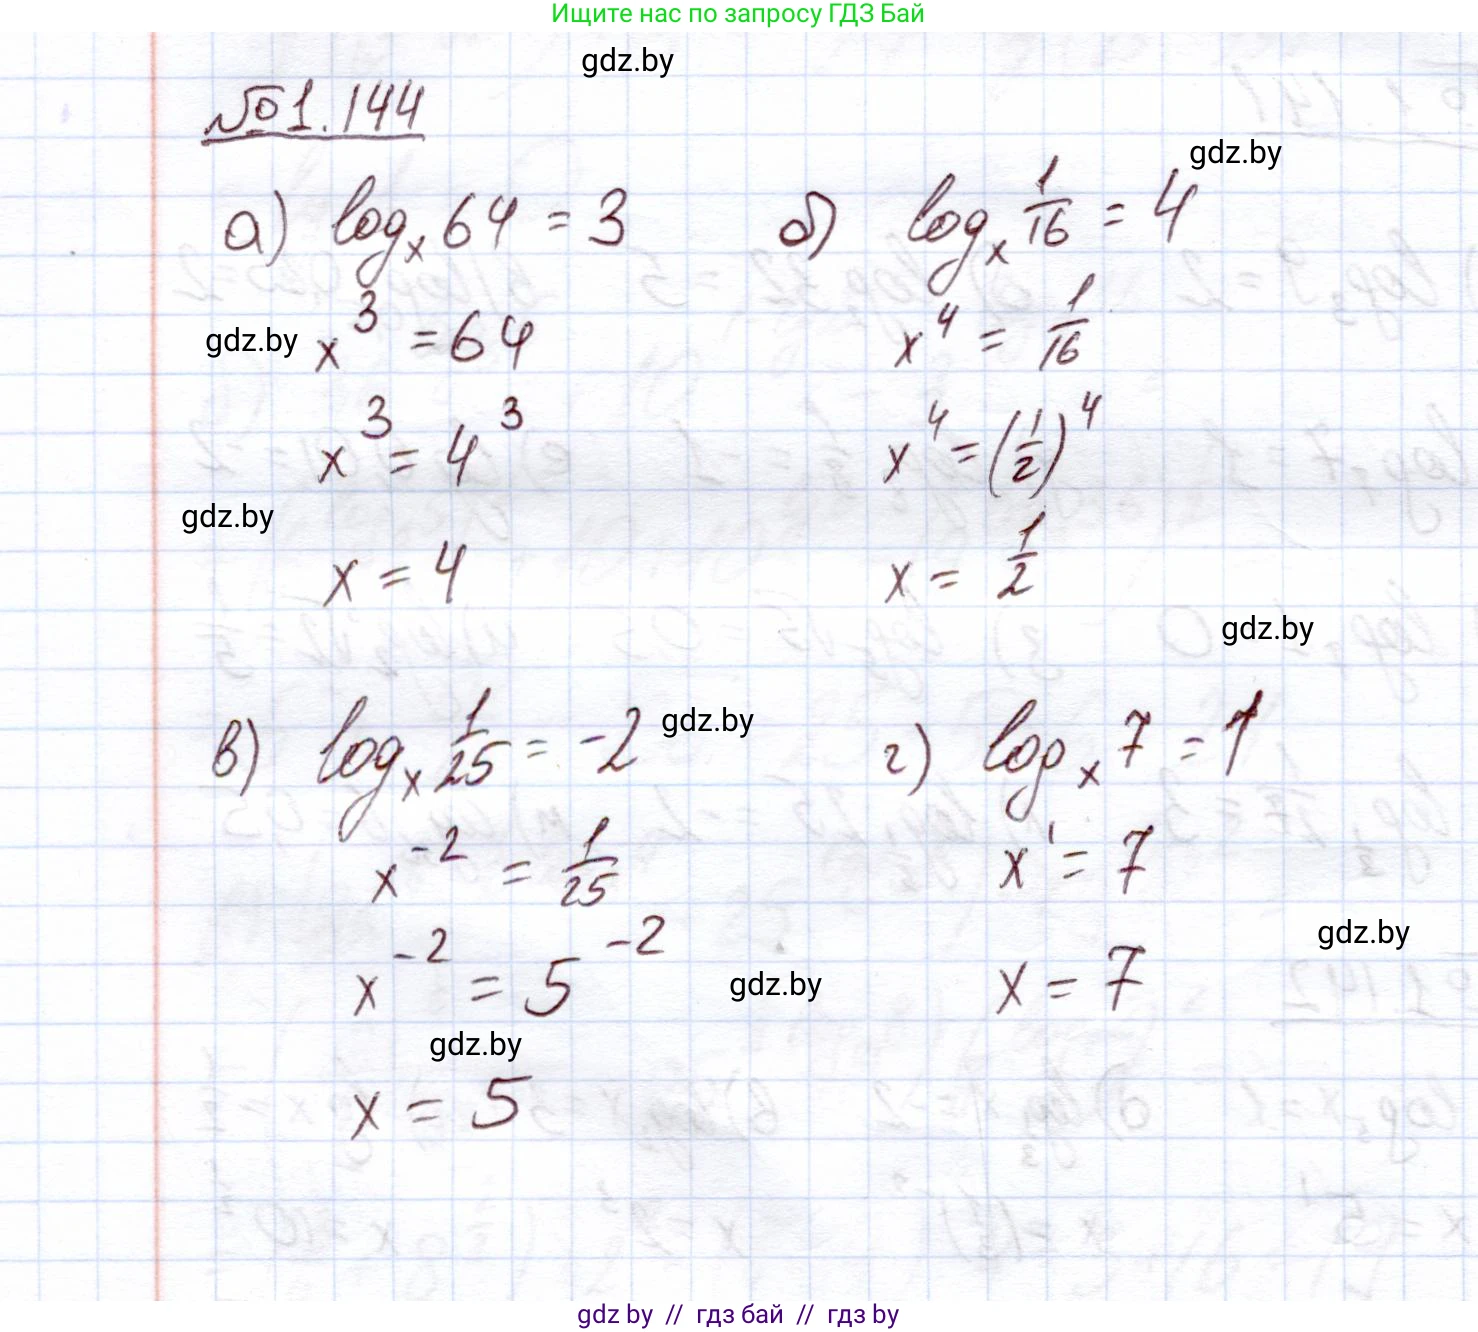 Ищите нас по запросу ГДЗ Бай
gdz.by
№1.144
gdz.by
а) log_x 64 = 3
x^3 = 64
gdz.by
x^3 = 4^3
gdz.by
x = 4
б) log_x 1/16 = 4
x^4 = 1/16
x^4 = (1/2)^4
x = 1/2
gdz.by
в) log_x 1/25 = -2
gdz.by
x^-2 = 1/25
x^-2 = 5^-2
gdz.by
gdz.by
x = 5
г) log_x 7 = 1
x^1 = 7
gdz.by
x = 7
gdz by // гдз бай // гдз by